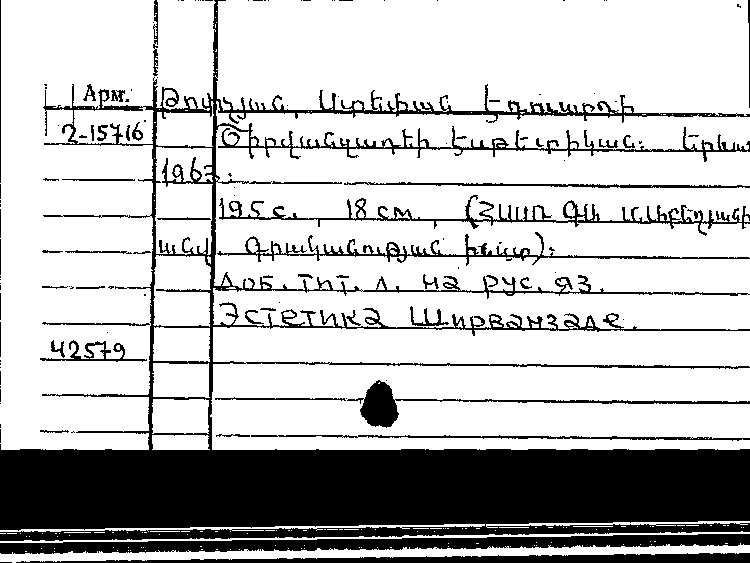 Арм. Թոփչյան, Ստեփան Էդուարդի
2-15716 Շիրվանզադեի էսթետիկան։ Երևան
1963։
195 с., 18 см., (ՀՍՍՌ ԳԱ Մ. Աբեղյանի
անվ. Գրականության ինստ)։
Доб. тит. л. на рус. яз.
Эстетика Ширванзаде.
42579